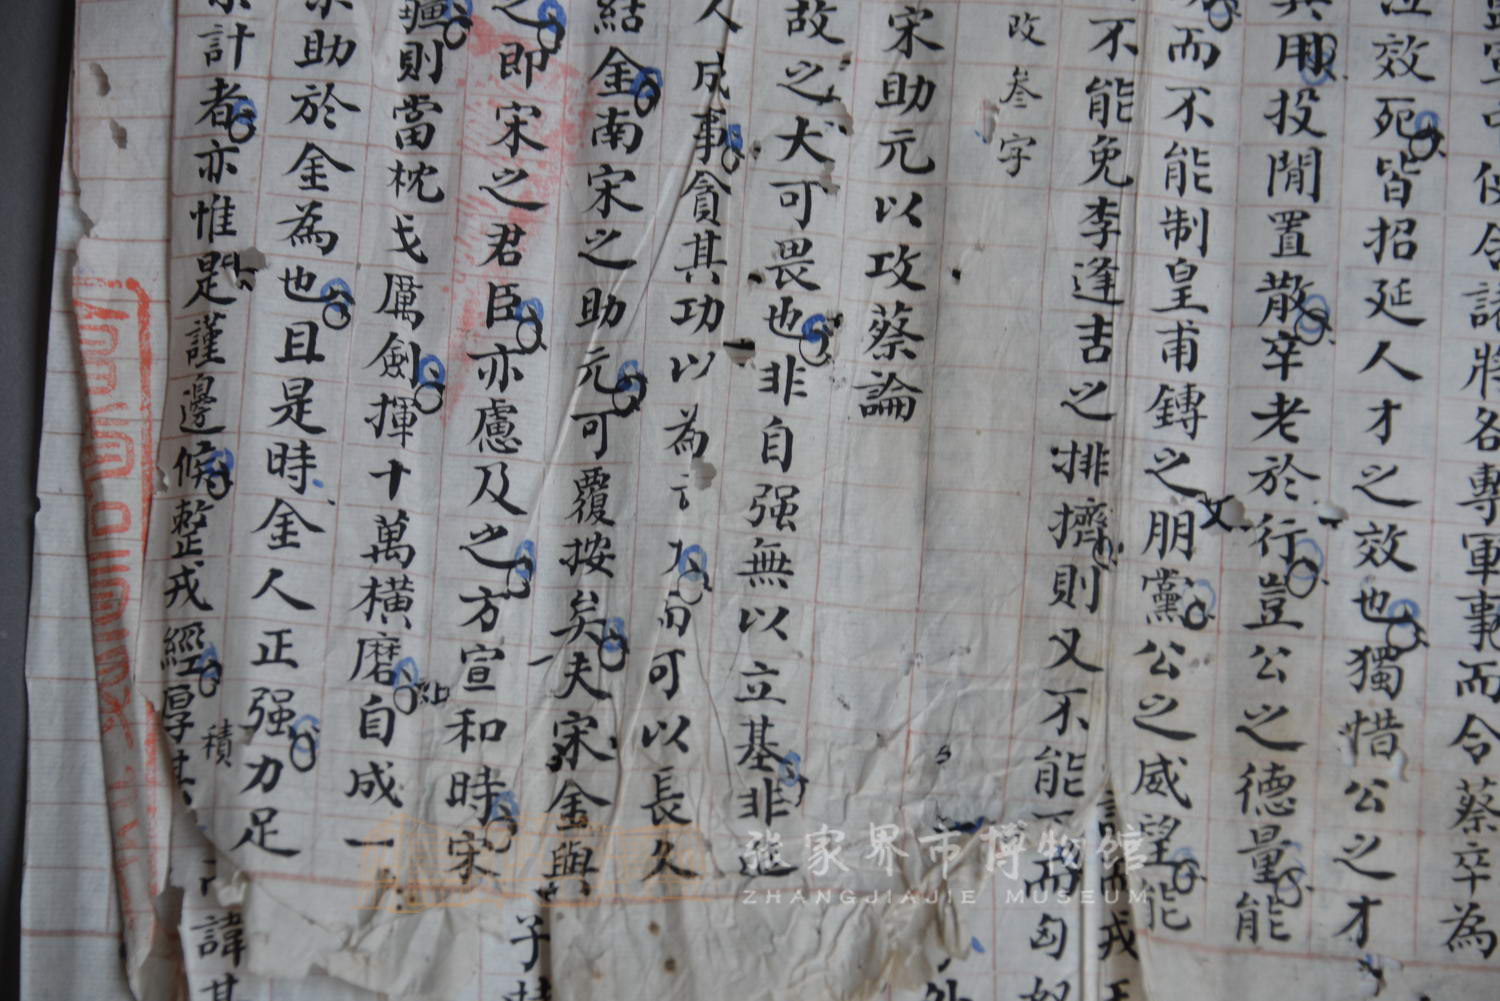 使令諸將各專軍事而令蔡卒為
效死皆招延人才之效也獨惜公之才
用投閒置散卒老於行豈公之德量能
而不能制皇甫鎛之朋黨公之威望能
不能免李逢吉之排擠則又不能
改叁字
宋助元以攻蔡論
故之犬可畏也非自强無以立基非
人成事貪其功以為可以長久
結金南宋之助元可覆按矣夫宋金與
之即宋之君臣亦慮及之方宣和時宋
則當枕戈厲劍揮十萬橫磨自成一
助於金為也且是時金人正强力足
計者亦惟是謹邊候整戎經厚其
積
諱其
子
而匈奴
戎
张家界市博物馆
ZHANGJIAJIE MUSEUM